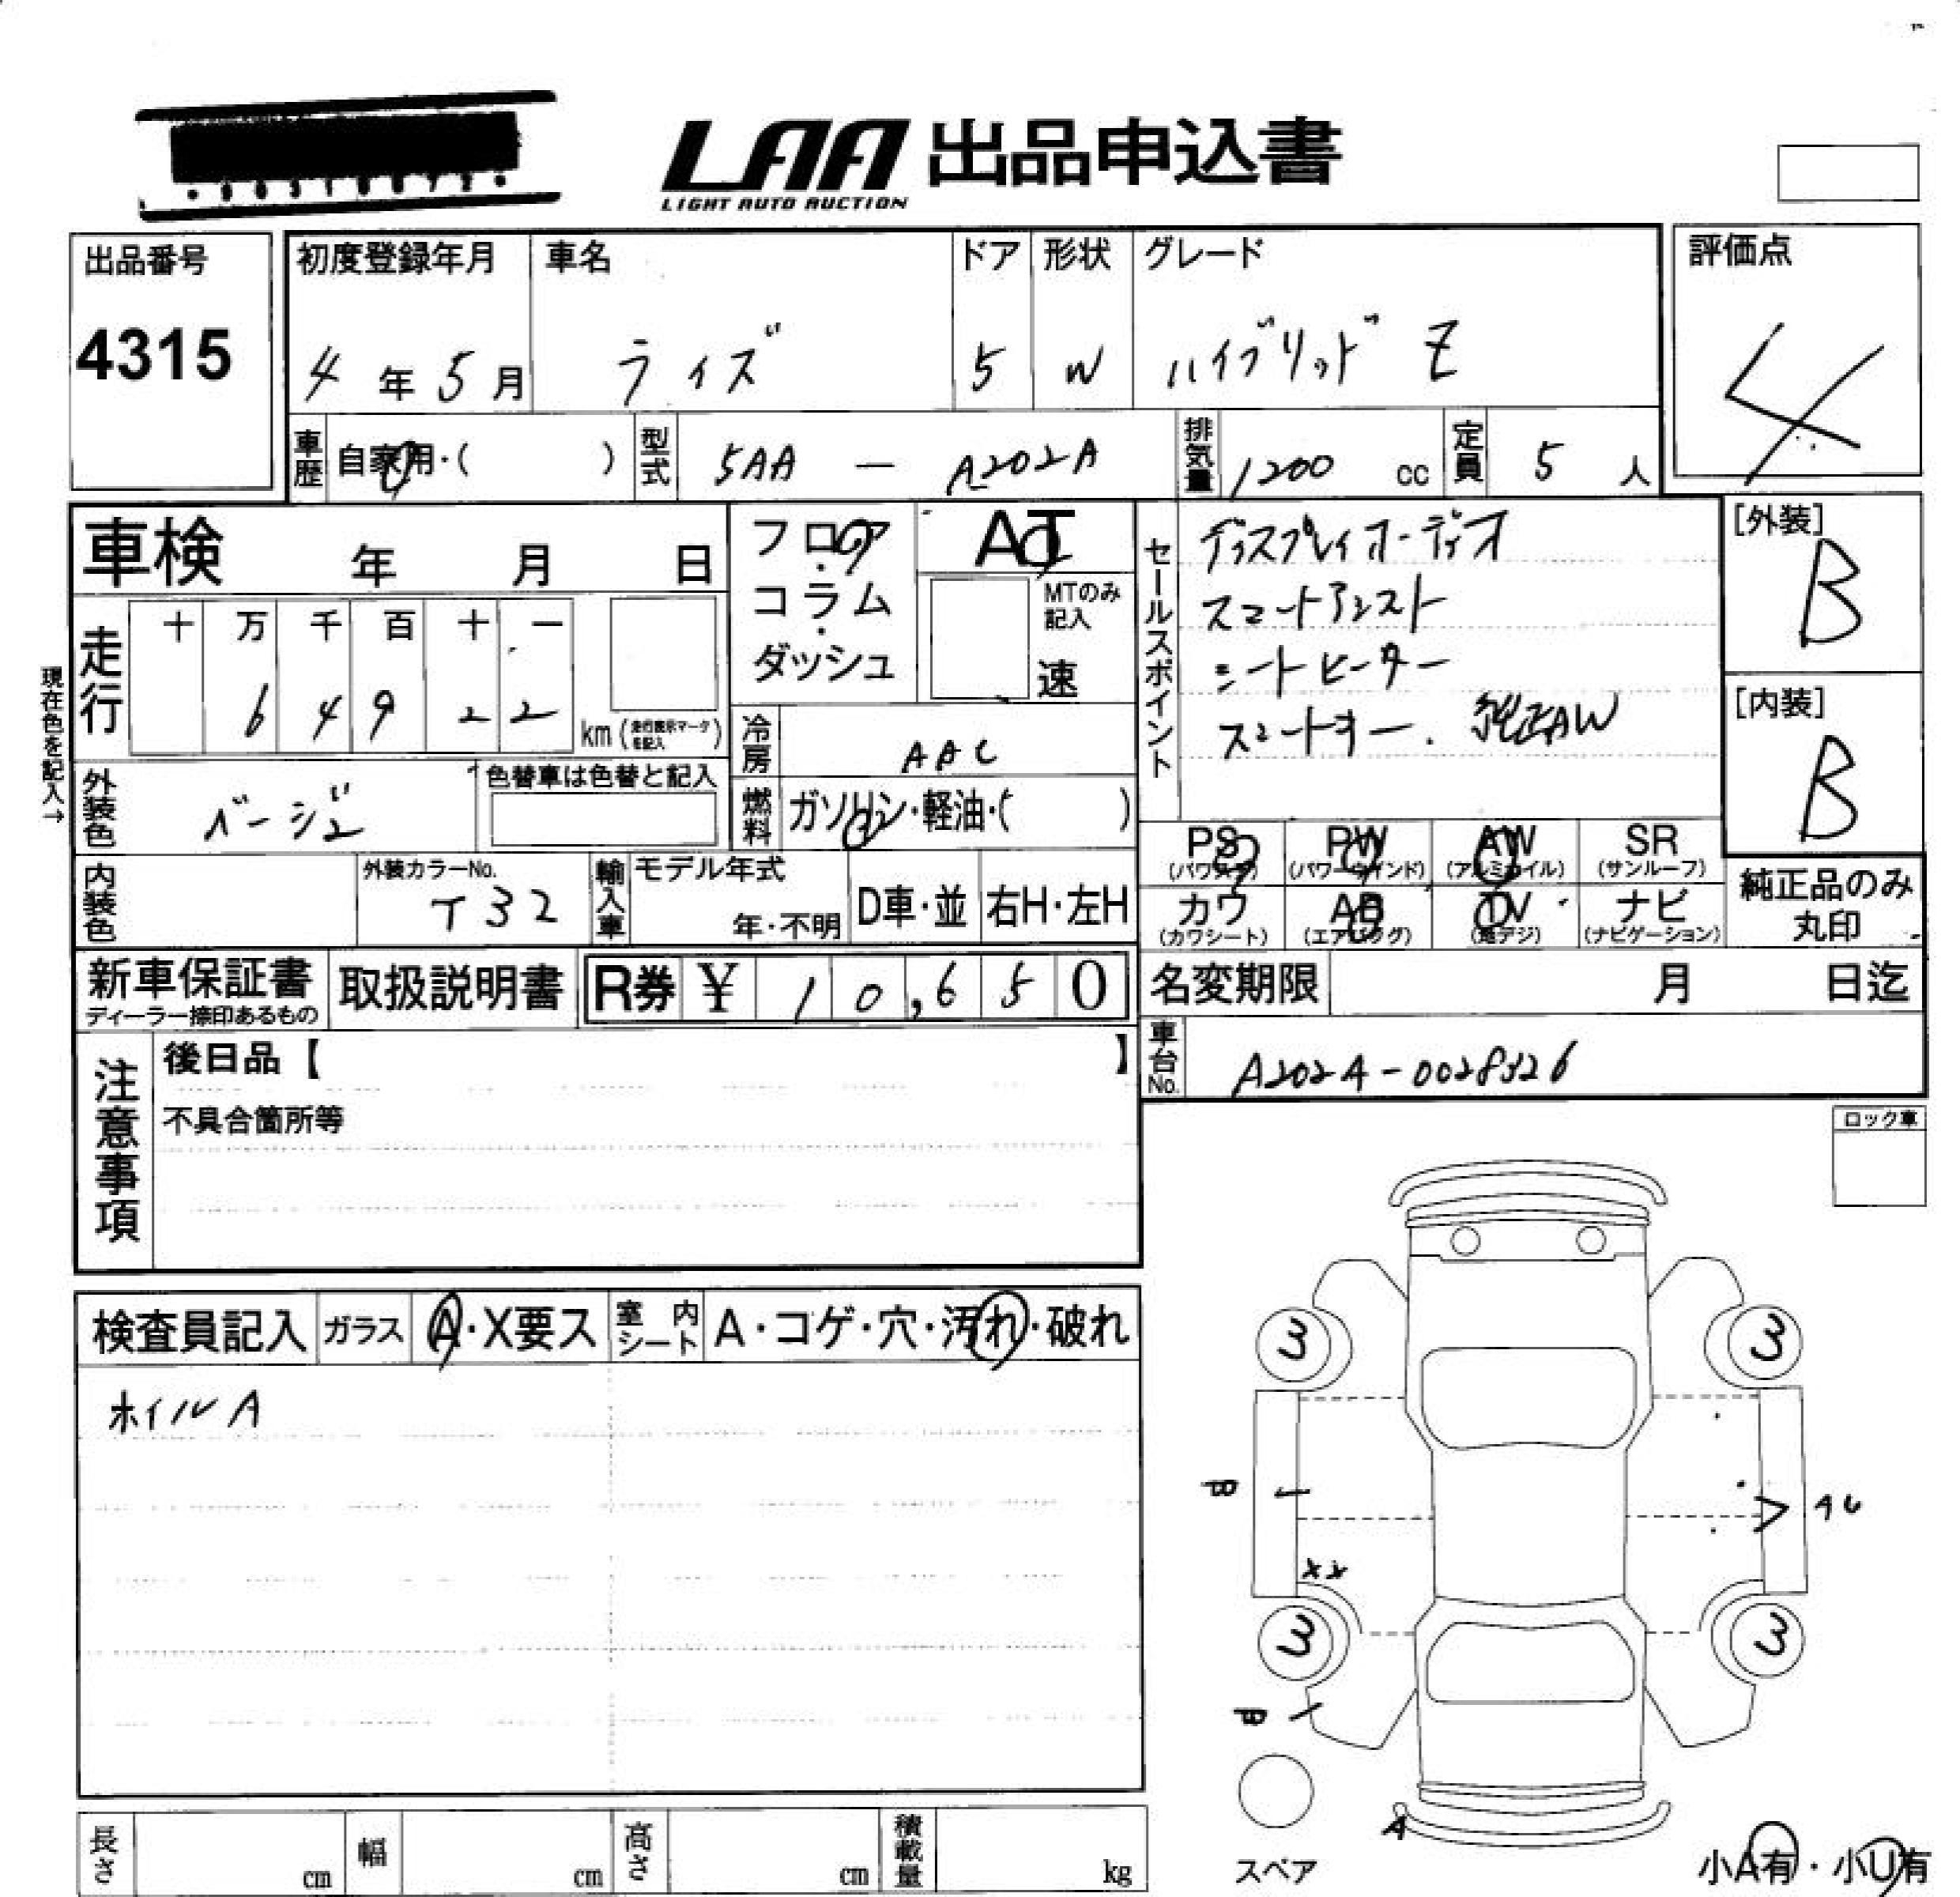 LAA 出品申込書
LIGHT AUTO AUCTION
出品番号
4315
初度登録年月 車名 ドア 形状 グレード
4年5月 ライズ 5 W ハイブリッド Z
評価点
4
車歴 自家用・( ) 型式 5AA — A202A 排気量 1200 cc 定員 5 人
車検 年 月 日
フロア・コラム・ダッシュ
AT
MTのみ記入
速
セールスポイント
ディスプレイオーディオ
スマートアシスト
シートヒーター
スマートキー. 純正AW
[外装]
B
[内装]
B
現在色を記入→
走行
十 万 千 百 十 一
6 4 9 2 2 km (走行表示マークを記入)
冷房 AAC
外装色 ベージュ 色替車は色替と記入
燃料 ガソリン・軽油・( )
内装色 外装カラーNo. T32
輸入車 モデル年式 年・不明 D車・並 右H・左H
PS (パワステ) PW (パワーウインド) AW (アルミホイル) SR (サンルーフ)
カワ (カワシート) AB (エアバッグ) TV (地デジ) ナビ (ナビゲーション)
純正品のみ丸印
新車保証書 ディーラー捺印あるもの 取扱説明書 R券 ¥ 10,650
名変期限 月 日迄
車台No. A202A-0028326
注意事項
後日品【 】
不具合箇所等
ロック車
検査員記入 ガラス A・X要ス 室内シート A・コゲ・穴・汚れ・破れ
ホイルA
3 3
B AU
XX
3 3
B
A
スペア
小A有・小U有
長さ cm 幅 cm 高さ cm 積載量 kg